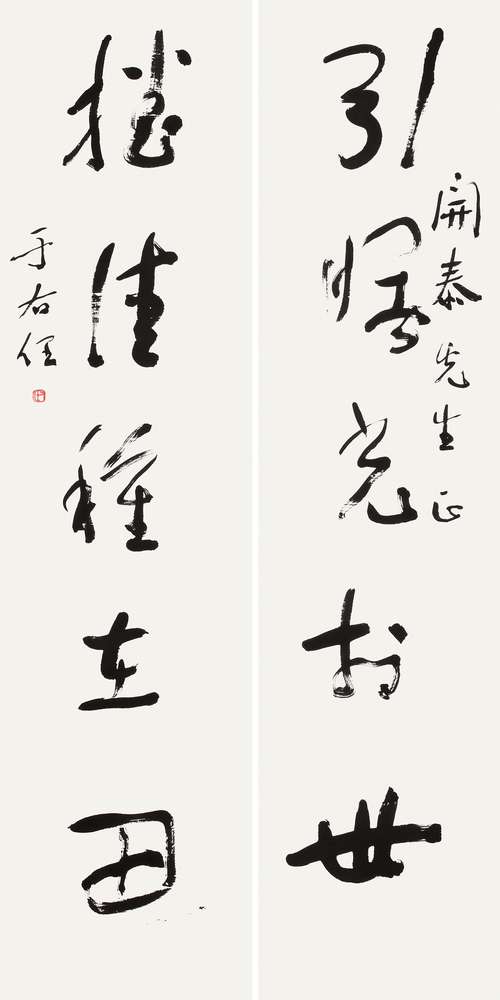 開泰先生正
引曙光於世
播佳種在田
于右任